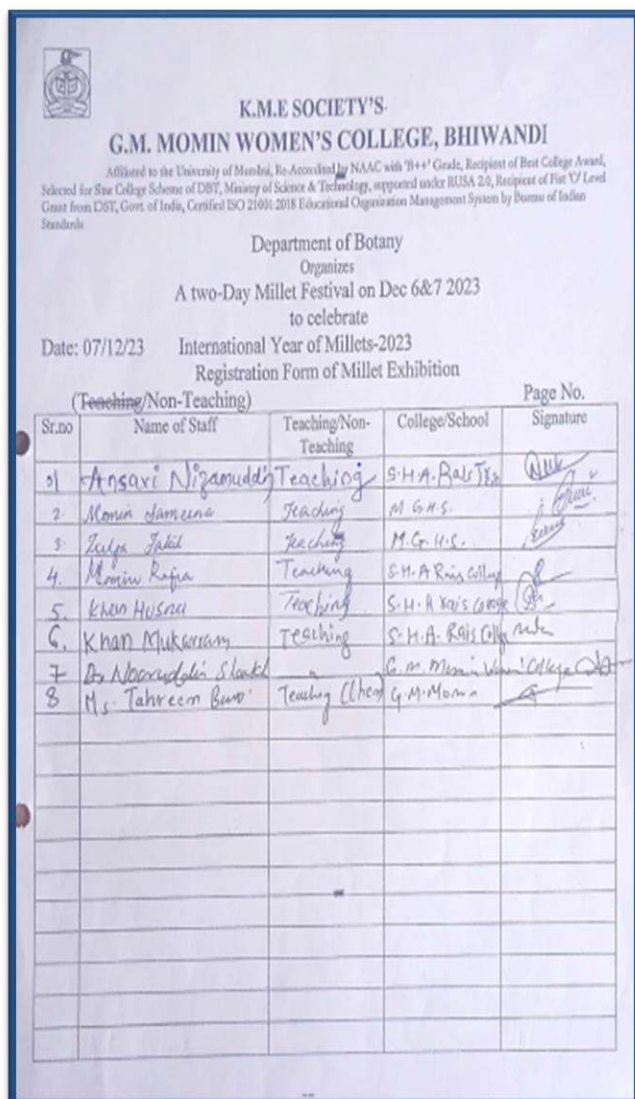 K.M.E SOCIETY'S
G.M. MOMIN WOMEN'S COLLEGE, BHIWANDI
Affiliated to the University of Mumbai, Re-Accredited by NAAC with 'B++' Grade, Recipient of Best College Award,
Selected for Star College Scheme of DBT, Ministry of Science & Technology, supported under RUSA 2.0, Recipient of Fist 'O' Level
Grant from DST, Govt. of India, Certified ISO 21001:2018 Educational Organization Management System by Bureau of Indian
Standards
Department of Botany
Organizes
A two-Day Millet Festival on Dec 6&7 2023
to celebrate
Date: 07/12/23 International Year of Millets-2023
Registration Form of Millet Exhibition
(Teaching/Non-Teaching) Page No.
Sr.no Name of Staff Teaching/Non-Teaching College/School Signature
01 Ansari Nizamuddin Teaching S.H.A. Rais
2. Momin Teaching M G.H.S.
3. Teaching M.G.H.S.
4. Momin Teaching S.H.A Rais College
5. Khan Husna Teaching S.H.A Rais College
6. Khan Mukarram Teaching S.H.A. Rais College
7 Dr Nooruddin " G.M. Momin Women' College
8 Ms. Tahreem Teaching (Chem) G.M.Momin